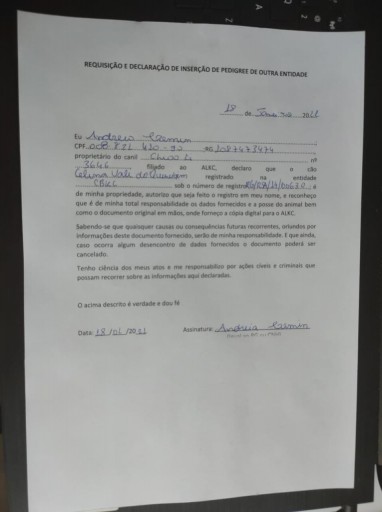 REQUISIÇÃO E DECLARAÇÃO DE INSERÇÃO DE PEDIGREE DE OUTRA ENTIDADE
18 de
Eu Andreia
CPF RG
proprietário do canil nº
3646 filiado ao ALKC, declaro que o cão
registrado na entidade
CBKC sob o número de registro é
de minha propriedade, autorizo que seja feito o registro em meu nome, e reconheço
que é de minha total responsabilidade os dados fornecidos e a posse do animal bem
como o documento original em mãos, onde forneço a cópia digital para o ALKC.
Sabendo-se que quaisquer causas ou consequências futuras recorrentes, oriundos por
informações deste documento fornecido, serão de minha responsabilidade. E que ainda,
caso ocorra algum desencontro de dados fornecidos o documento poderá ser
cancelado.
Tenho ciência dos meus atos e me responsabilizo por ações cíveis e criminais que
possam recorrer sobre as informações aqui declaradas.
O acima descrito é verdade e dou fé
Data: 18/01/ Assinatura: Andreia